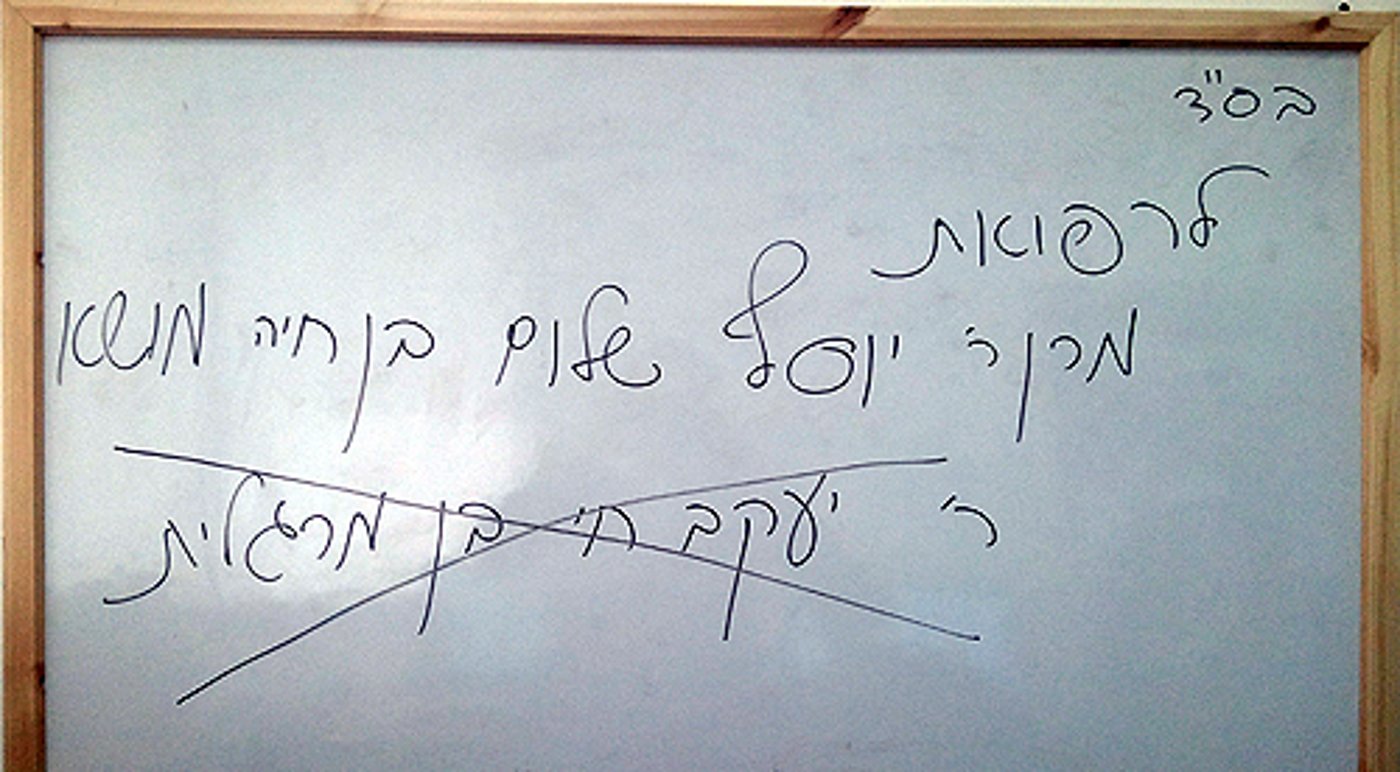 בס"ד
לרפואת
מרן ר' יוסף שלום בן חיה מושא
ר' יעקב חי בן מרגלית